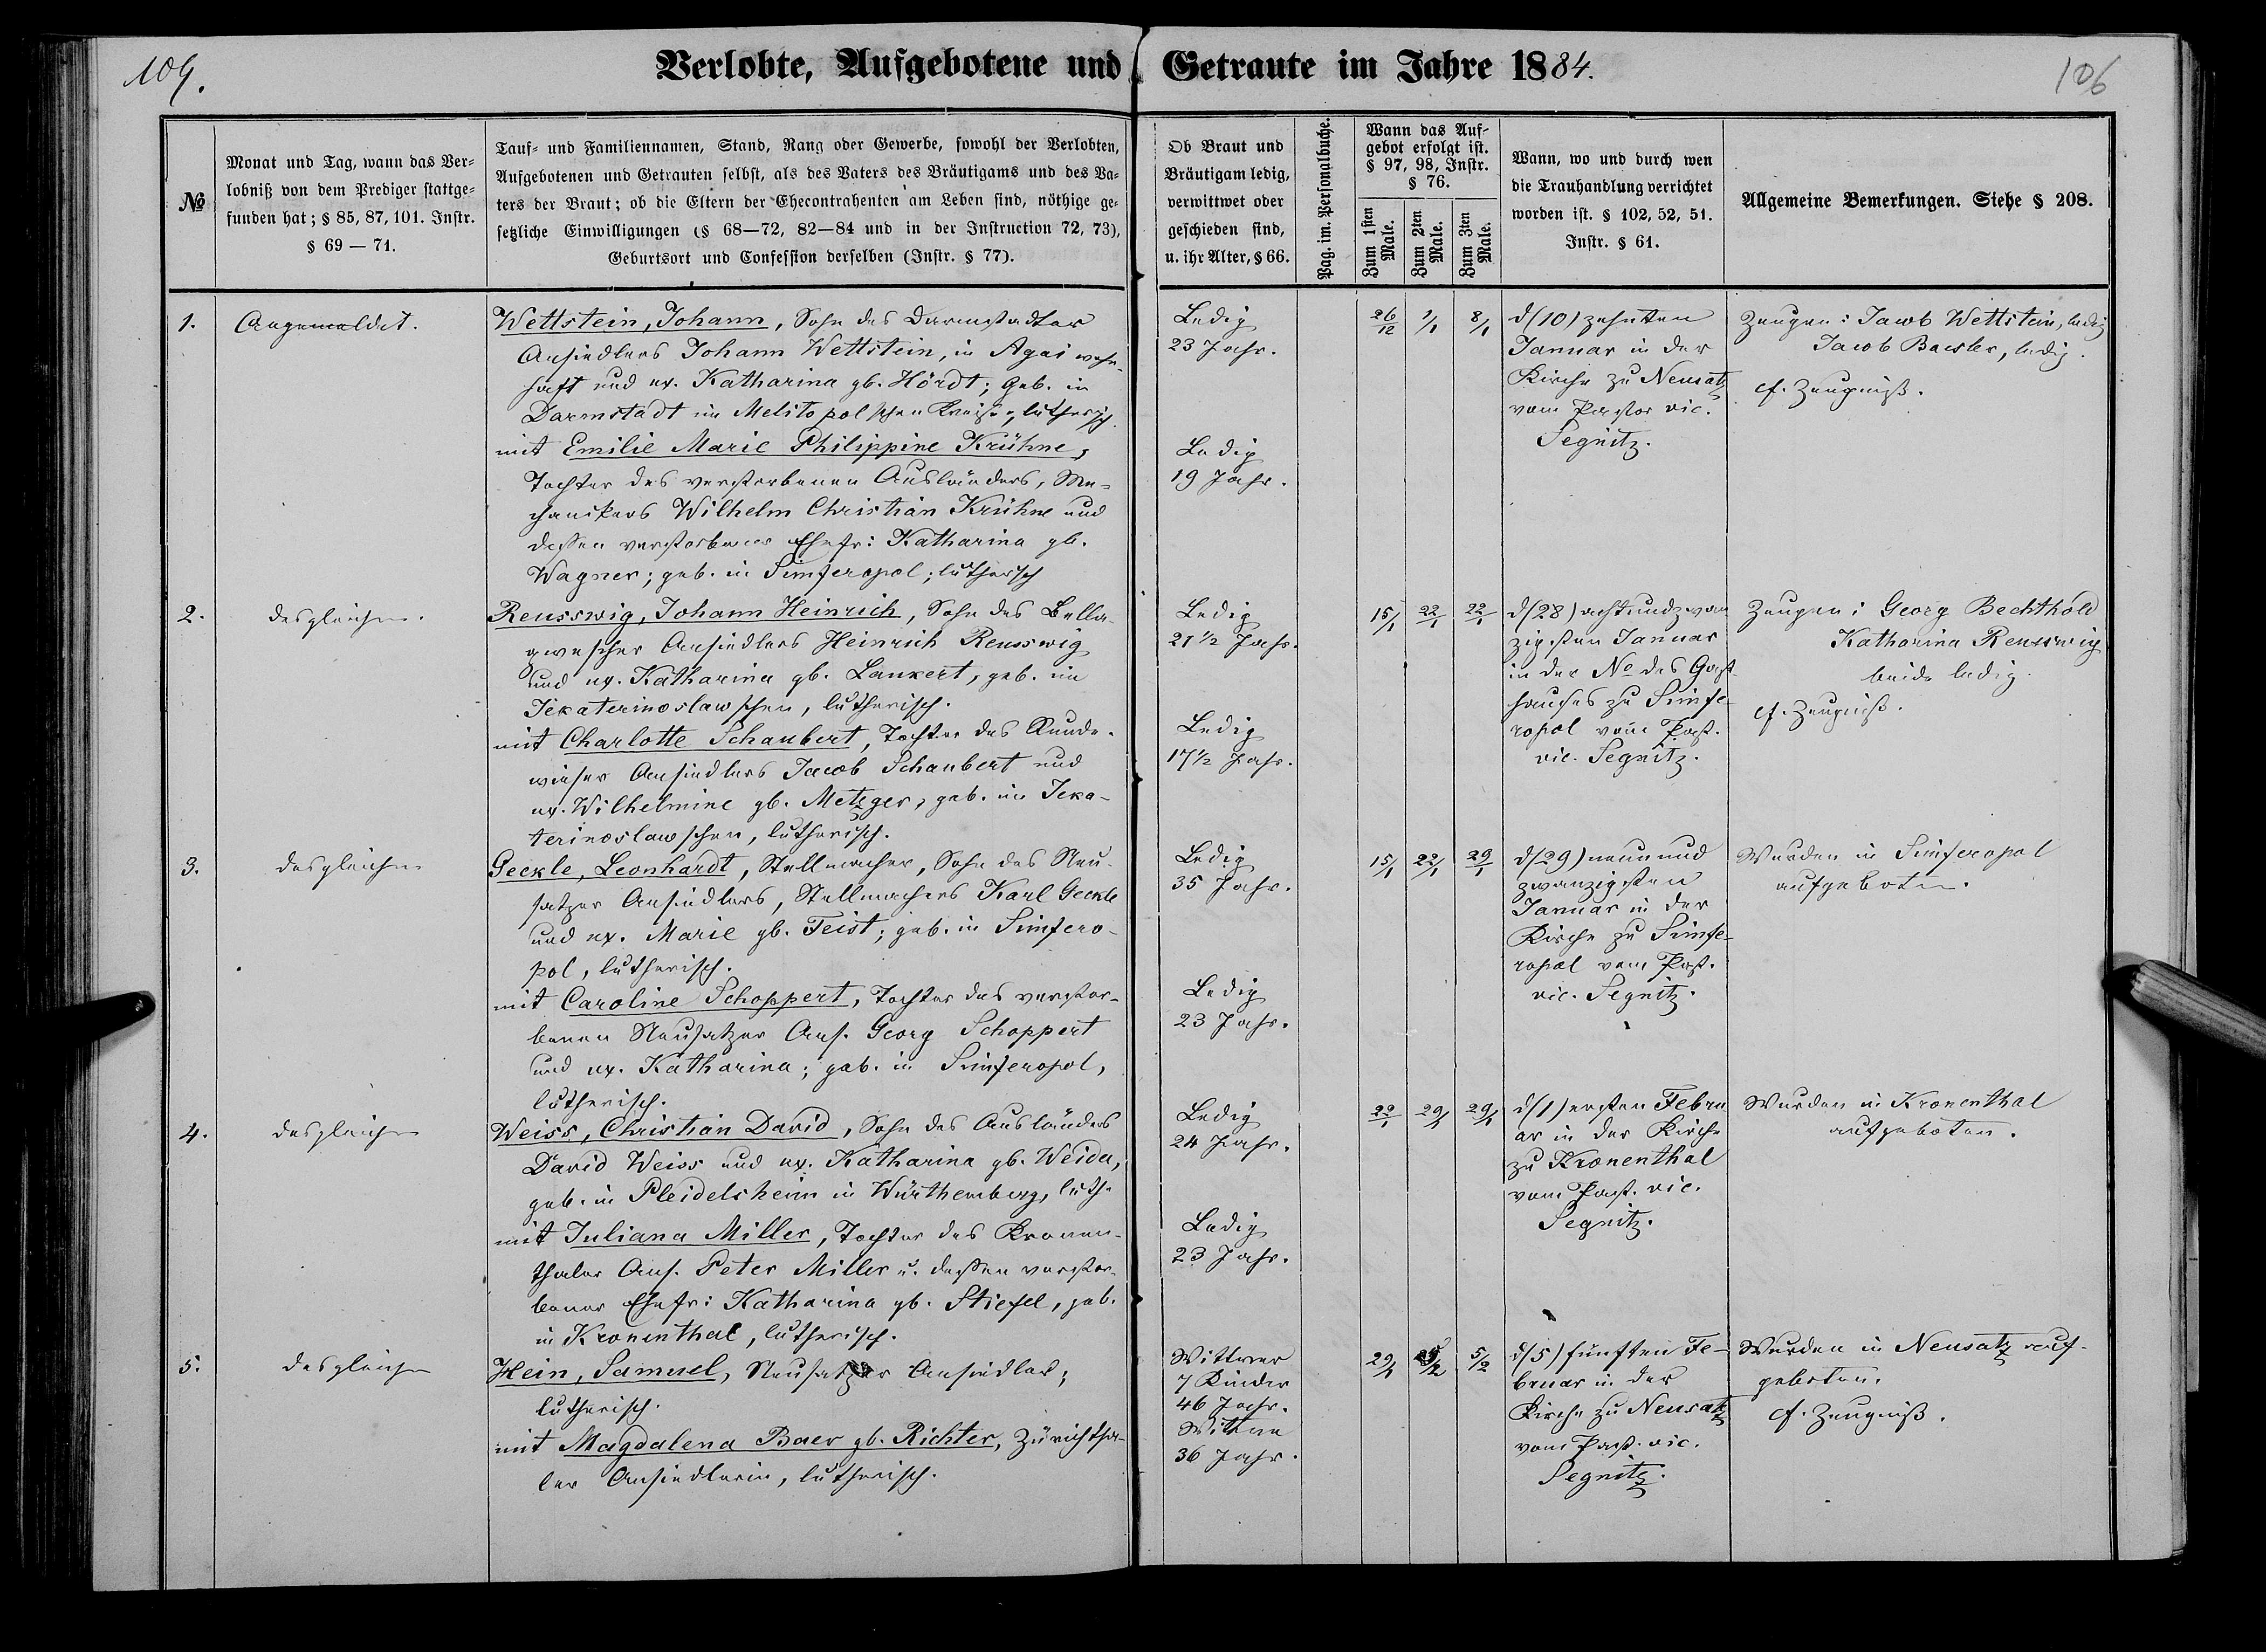 109.
106
Verlobte, Aufgebotene und Getraute im Jahre 1884.
№
Monat und Tag, wann das Ver-
lobniß von dem Prediger stattge-
funden hat; § 85, 87, 101. Instr.
§ 69 — 71.
Tauf- und Familiennamen, Stand, Rang oder Gewerbe, sowohl der Verlobten,
Aufgebotenen und Getrauten selbst, als des Vaters des Bräutigams und des Va-
ters der Braut; ob die Eltern der Ehecontrahenten am Leben sind, nöthige ge-
setzliche Einwilligungen (§ 68—72, 82—84 und in der Instruction 72, 73),
Geburtsort und Confession derselben (Instr. § 77).
Ob Braut und
Bräutigam ledig,
verwittwet oder
geschieden sind,
u. ihr Alter, § 66.
Pag. im. Personalbuche.
Wann das Auf-
gebot erfolgt ist.
§ 97, 98, Instr.
§ 76.
Zum 1sten
Male.
Zum 2ten
Male.
Zum 3ten
Male.
Wann, wo und durch wen
die Trauhandlung verrichtet
worden ist. § 102, 52, 51.
Instr. § 61.
Allgemeine Bemerkungen. Siehe § 208.
1.
Angemeldet.
Wettstein, Johann, Sohn des Darmstadter
Ansiedlers Johann Wettstein, in Agai wohn-
haft und ux. Katharina gb. Hördt; geb. in
Darmstadt im Melitopolschen Kreise, lutherisch
mit Emilie Marie Philippine Krühne,
Tochter des verstorbenen Ausländers, Me-
chanikers Wilhelm Christian Krühne und
dessen verstorbener Ehefr: Katharina gb.
Wagner; geb. in Simferopol; lutherisch
Ledig
23 Jahr.
Ledig
19 Jahr.
26/12
1/1
8/1
d/(10) zehnten
Januar in der
Kirche zu Neusatz
vom Pastor vic.
Segnitz.
Zeugen: Jacob Wettstein, ledig
Jacob Baesler, ledig.
cf. Zeugniß.
2.
desgleichen.
Reusswig, Johann Heinrich, Sohn des Bella-
gwescher Ansiedlers Heinrich Reusswig
und ux. Katharina gb. Lankert, geb. im
Jekaterinoslawschen, lutherisch.
mit Charlotte Schaubert, Tochter des Runde-
wieser Ansiedlers Jacob Schaubert und
ux. Wilhelmine gb. Metzger, geb. im Jeka-
terinoslawschen, lutherisch.
Ledig
21 1/2 Jahr.
Ledig
17 1/2 Jahr.
15/1
22/1
22/1
d/(28) achtundzwan
zigsten Januar
in der No des Gast-
hauses zu Simfe-
ropol vom Past.
vic. Segnitz.
Zeugen: Georg Bechthold
Katharina Reusswig
beide ledig.
cf. Zeugniß.
3.
desgleichen
Geckle, Leonhardt, Stellmacher, Sohn des Neu-
satzer Ansiedlers, Stellmachers Karl Geckle
und ux. Marie gb. Feist; geb. in Simfero-
pol, lutherisch.
mit Caroline Schoppert, Tochter des verstor-
benen Neusatzer Ans. Georg Schoppert
und ux. Katharina; geb. in Simferopol,
lutherisch.
Ledig
35 Jahr.
Ledig
23 Jahr.
15/1
22/1
29/1
d/(29) neunund
zwanzigsten
Januar in der
Kirche zu Simfe-
ropol vom Past.
vic. Segnitz.
Wurden in Simferopol
aufgeboten.
4.
desgleichen
Weiss, Christian David, Sohn des Ausländers
David Weiss und ux. Katharina gb. Weida,
geb. in Pleidelsheim in Würthemberg, luth.
mit Juliana Miller, Tochter des Kronen-
thaler Ans. Peter Miller u. dessen verstor-
bener Ehefr: Katharina gb. Stiefel, geb.
in Kronenthal, lutherisch.
Ledig
24 Jahr.
Ledig
23 Jahr.
22/1
29/1
29/1
d/(1) ersten Febru
ar in der Kirche
zu Kronenthal
vom Past. vic.
Segnitz.
Wurden in Kronenthal
aufgeboten.
5.
desgleichen
Hein, Samuel, Neusatzer Ansiedler;
lutherisch.
mit Magdalena Baer gb. Richter, Zürichtha-
ler Ansiedlerin, lutherisch.
Wittwer
7 Kinder
46 Jahr.
Wittwe
36 Jahr.
29/1
5/2
5/2
d/(5) fünften Fe-
bruar in der
Kirche zu Neusatz
vom Past. vic.
Segnitz.
Wurden in Neusatz auf-
geboten.
cf. Zeugniß.